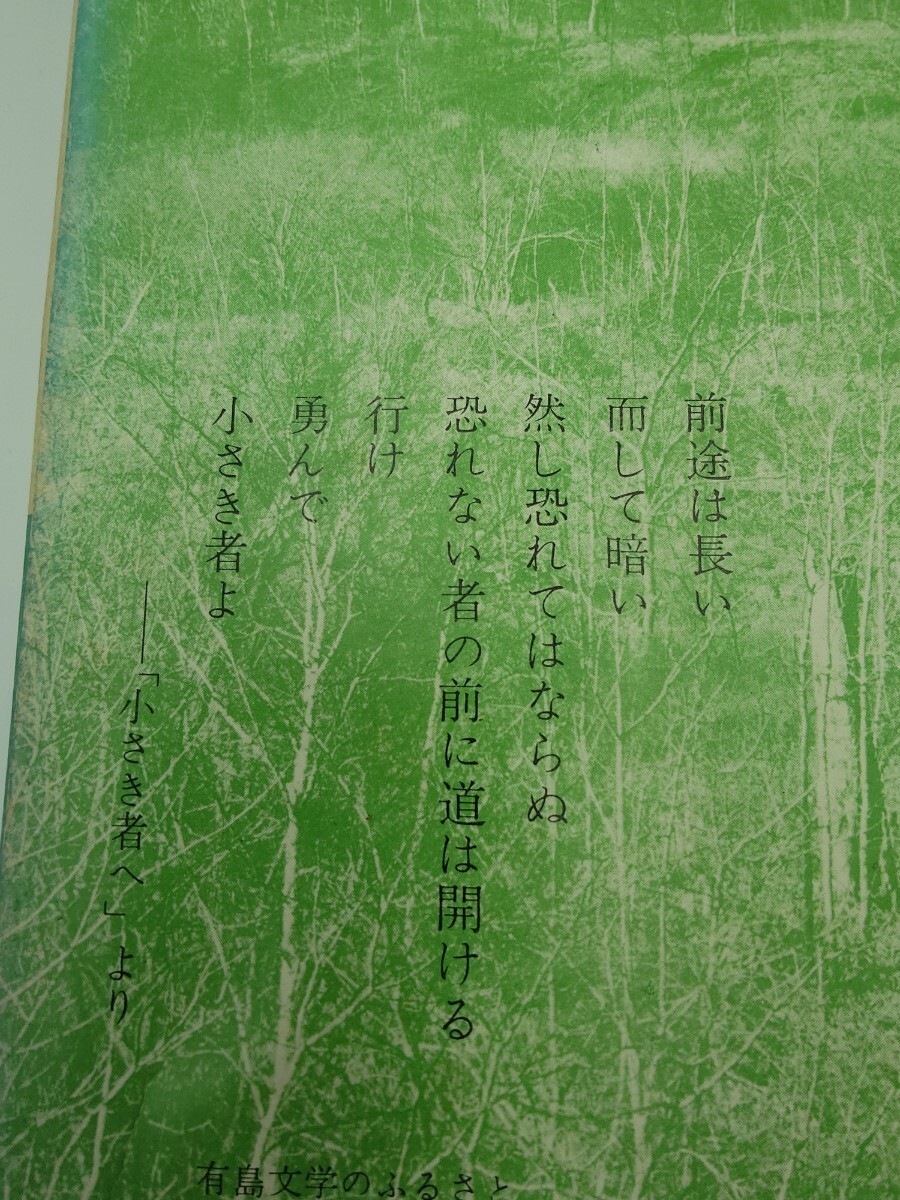 前途は長い
而して暗い
然し恐れてはならぬ
恐れない者の前に道は開ける
行け
勇んで
小さき者よ
――「小さき者へ」より
有島文学のふるさと